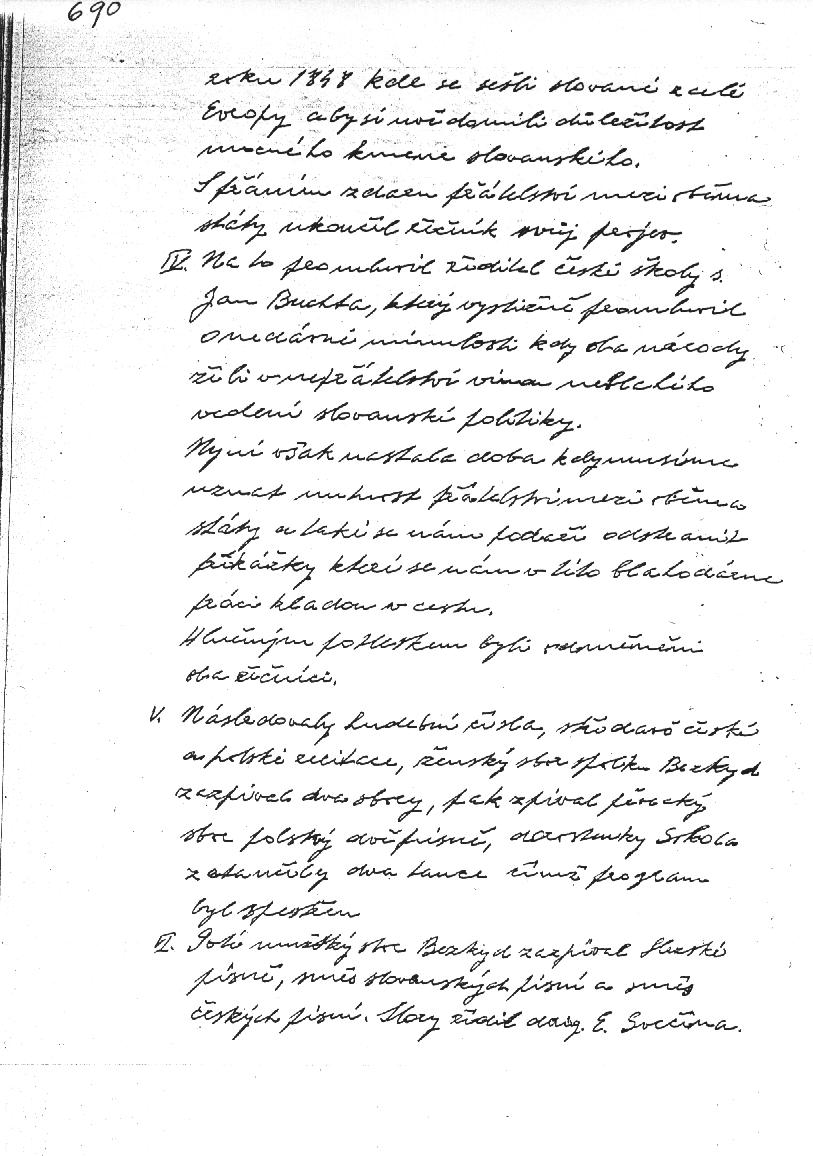 690
roku 1848 kde se sešli slované z celé
Evropy aby si uvědomili důležitost
mocného kmene slovanského.
S přáním zdaru přátelství mezi oběma
státy ukončil řečník svůj projev.
IV. Na to promluvil ředitel české školy s.
Jan Buchta, který výstižně promluvil
o nedávné minulosti kdy oba národy
žili v nepřátelství vinou nevlalého
vedení slovanské politiky.
Nyní však nastala doba kdy musíme
uznat nutnost přátelství mezi oběma
státy a také se nám podaří odstranit
překážky které se nám v této blahodárné
práci kladou v cestu.
Hlučným potleskem byli odměněni
oba řečníci.
V. Následovaly hudební čísla, české
a polské recitace, ženský sbor spolku Bezkyd
zazpíval dva sbory, pak zpíval pěvecký
sbor polský dvě písně, dorostenky Sokola
zatančily dva tance čímž program
byl zpestřen
VI. Poté mužský sbor Bezkyd zazpíval Slezské
písně, směs slovanských písní a směs
českých písní. Sbory řídil E. Svačina.